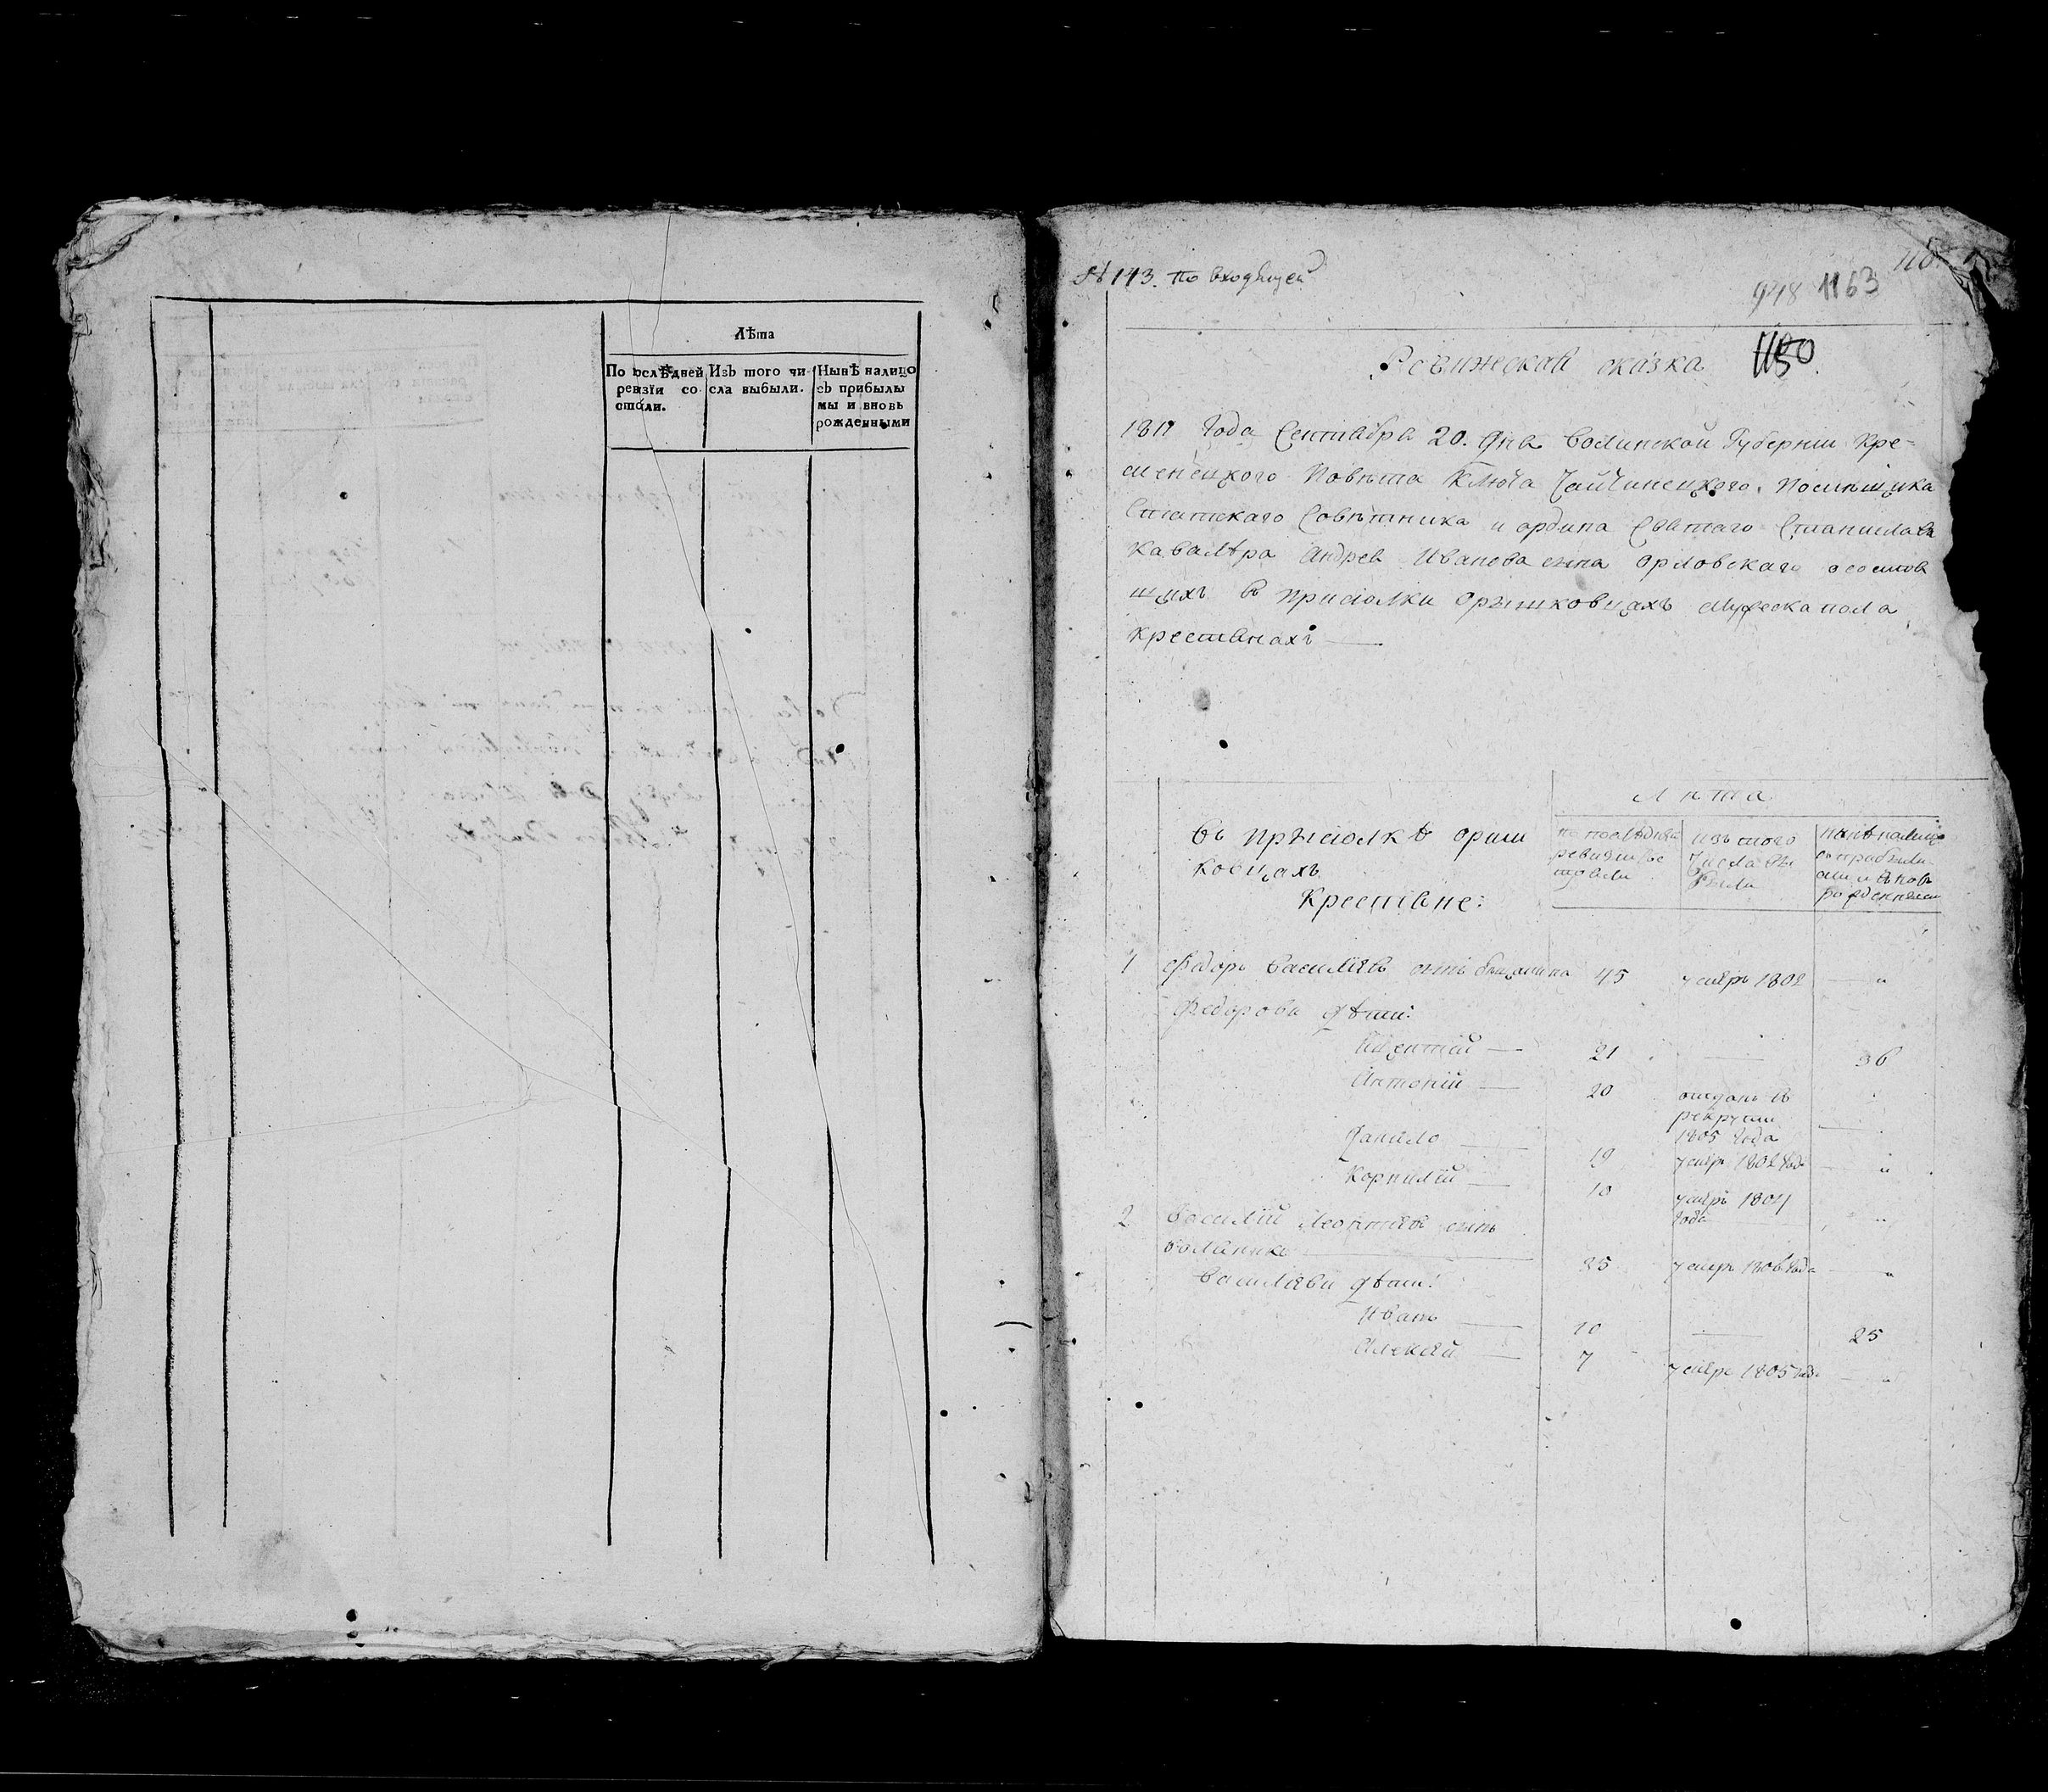 Лѣта
По ослѣдней ревизїи со стояли.
Изъ того чи- сла выбыли.
Нынѣ налицо съ прибылы мы и вновь рожденными
№ 143. По входящей
948 1163
1150
Ревижская сказка
1811 Года Сентября 20. дня Волинской Губернии Кре-
менецкого Повѣта Ключа Чайчинецкого. Помѣщика
Статского Совѣтника и ордина Святаго Станислава
Кавалѣра Андрея Иванова сына Орловскаго о состов
щихъ в присіолки Орышковцахъ Мужеска пола
Крестянахъ
Лѣта
Въ прысіолкѣ Ориш
ковцахъ
Крестяне:
по послѣдней ревизии
изъ того числа вы были
нынѣ налицо
1 Федоръ Василіевъ сынъ 45 умѣръ 1802 "
Федорова дѣти:
21 36
Антоній 20 отданъ въ
рекрути
1805 Года
Данило 19 умѣръ 1802 Года "
Корнилій 10 умѣръ 1804
Года "
2 Василій Леонтіевъ сынъ
25 умѣръ 1806 Года "
Василіеви дѣти:
Иванъ 10 25
Алексѣй 7 умѣръ 1805 Года "